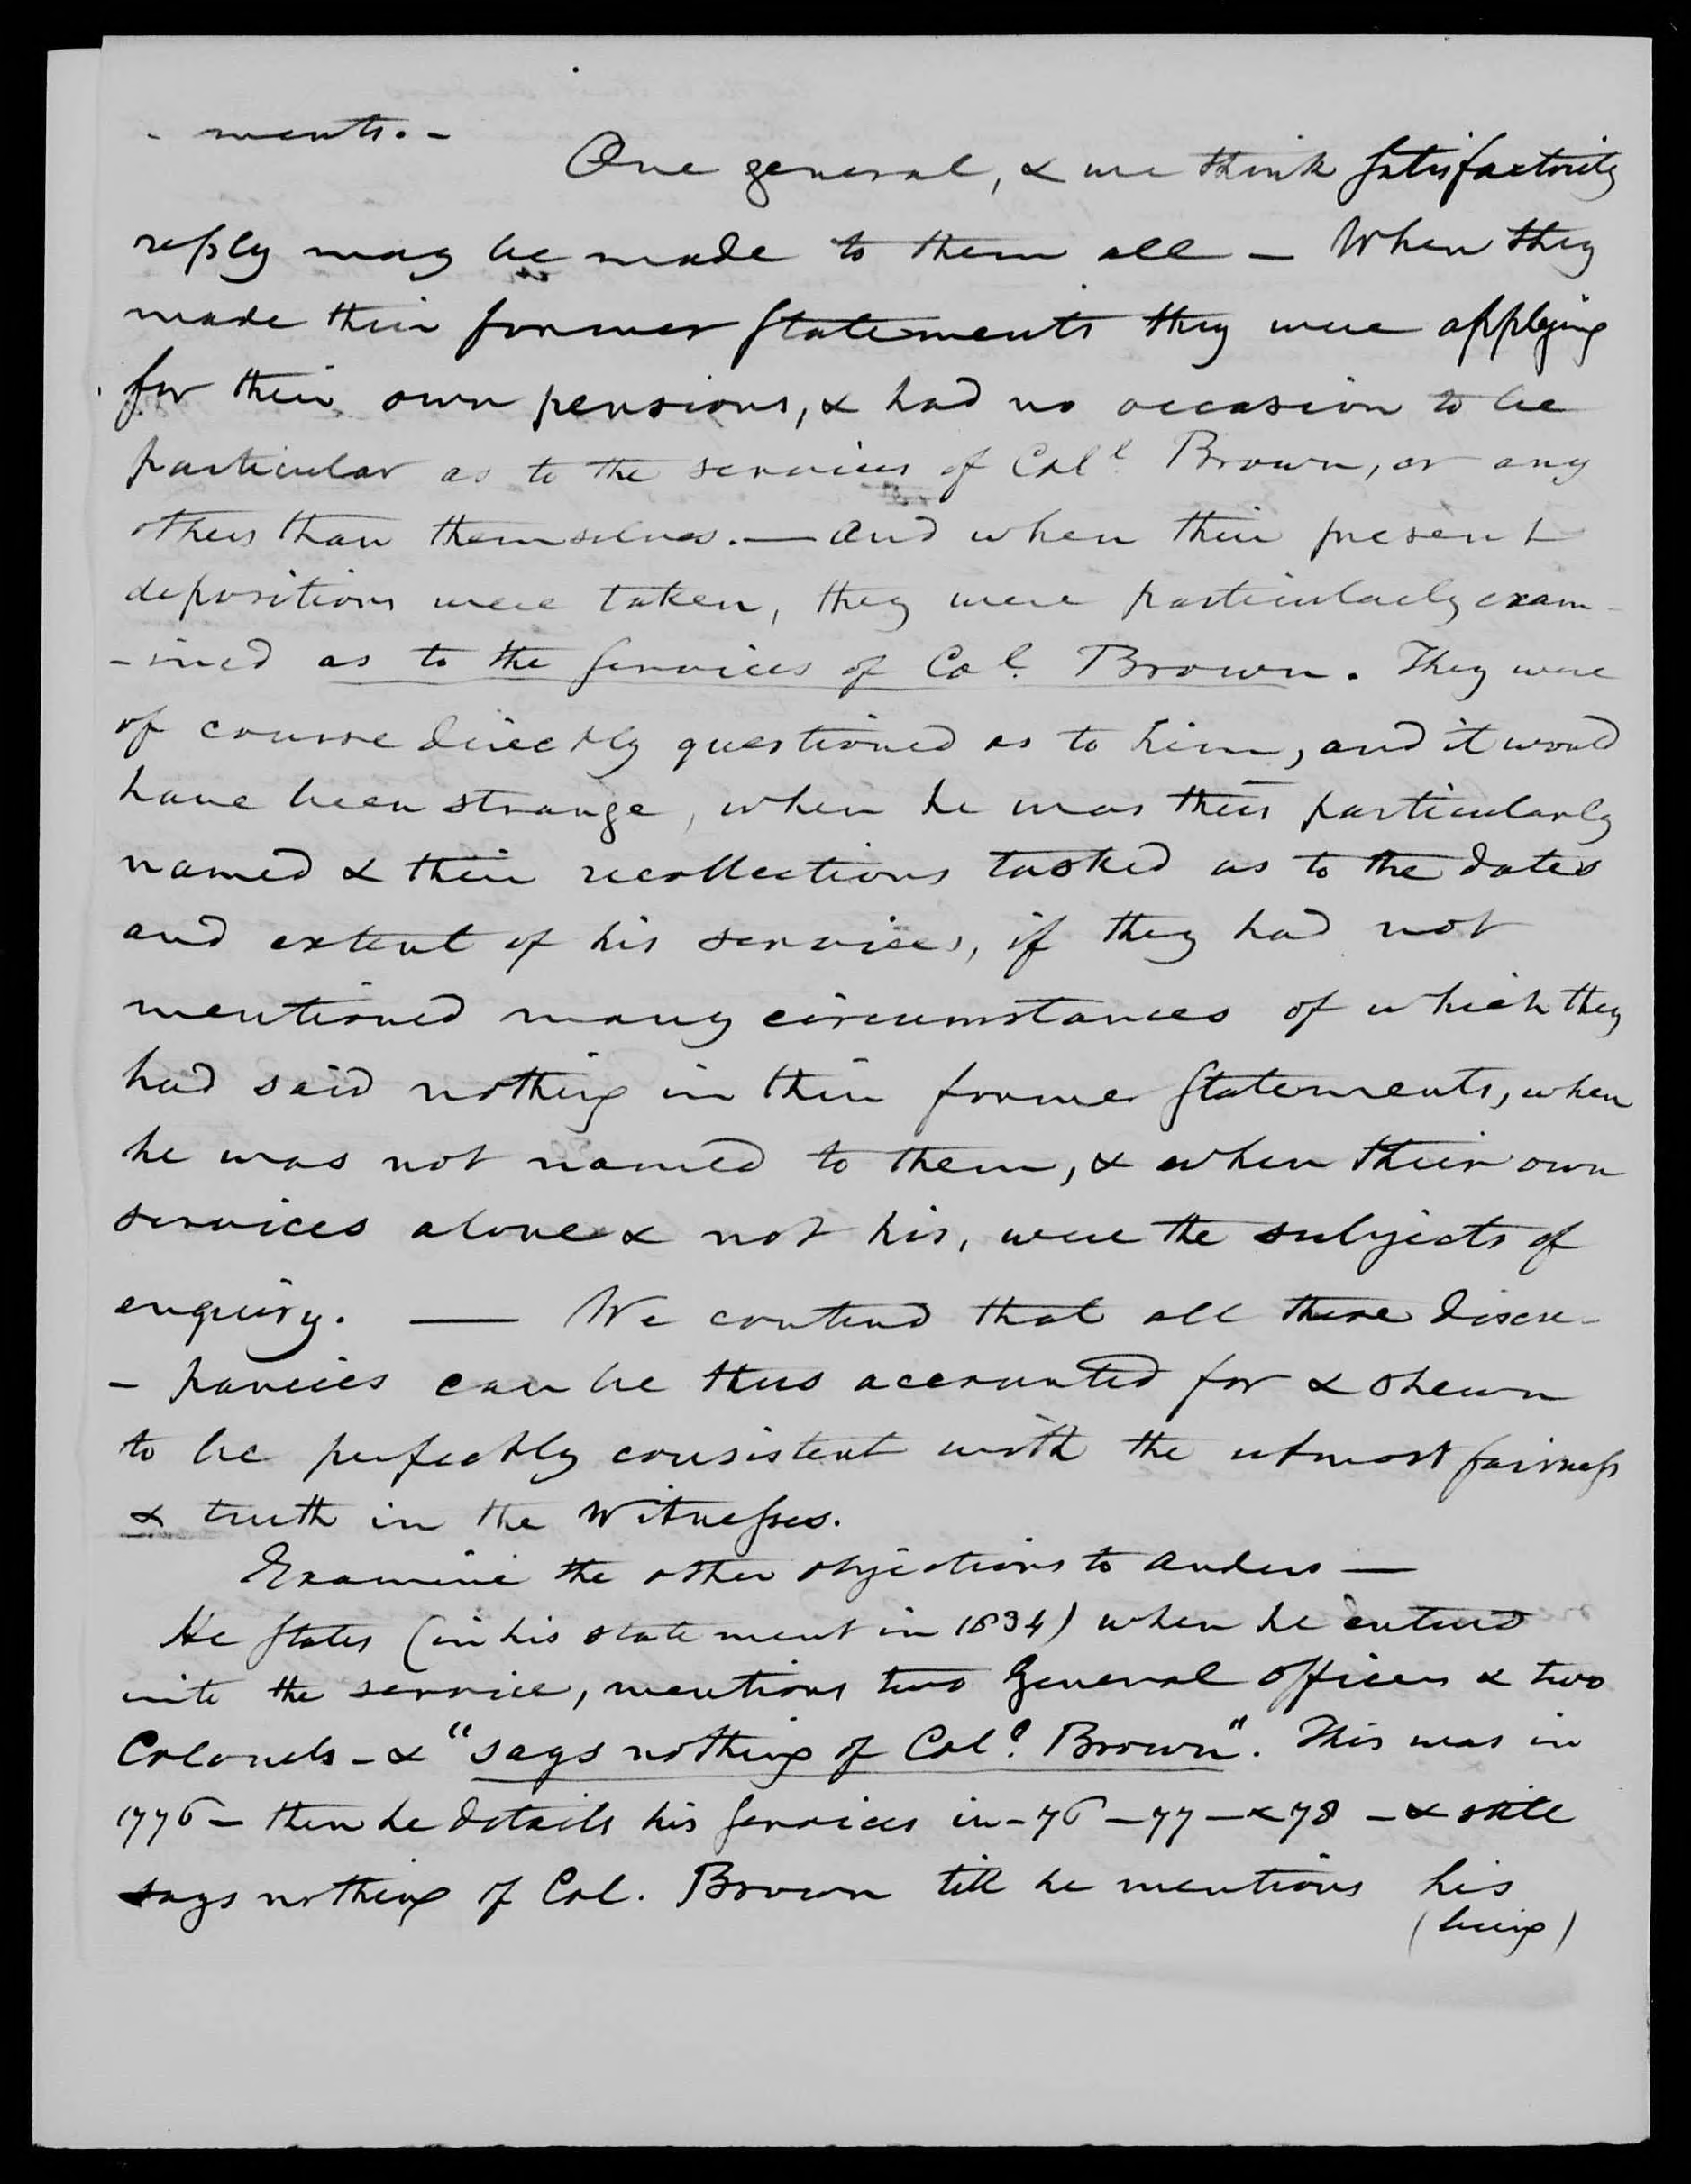 - ments. -
One general, & we think Satisfactority
reply may be made to them all - When they
made their former Statements they were applying
for their own pensions, & had no occasion to be
particular as to the services of Col.l Brown, or any
others than themselves. — And when their present
depositions were taken, they were particularly exam-
- ined as to the Services of Col. Brown. They were
of course directly questioned as to him, and it would
have been strange, when he was thus particularly
named & their recollections tasked as to the dates
and extent of his services, if they had not
mentioned many circumstances of which they
had said nothing in their former Statements, when
he was not named to them, & when their own
services alone & not his, were the subjects of
enquiry. — We contend that all these discre-
- pancies can be thus accounted for & shewn
to be perfectly consistent with the utmost fairness
& truth in the Witnesses.
Examine the other objections to Anders —
He States (in his statement in 1834) when he entered
into the service, mentions two General Officers & two
Colonels - & "says nothing of Col. Brown". This was in
1776 - then he details his Services in - 76 - 77 - & 78 - & still
says nothing of Col. Brown till he mentions his
(being)